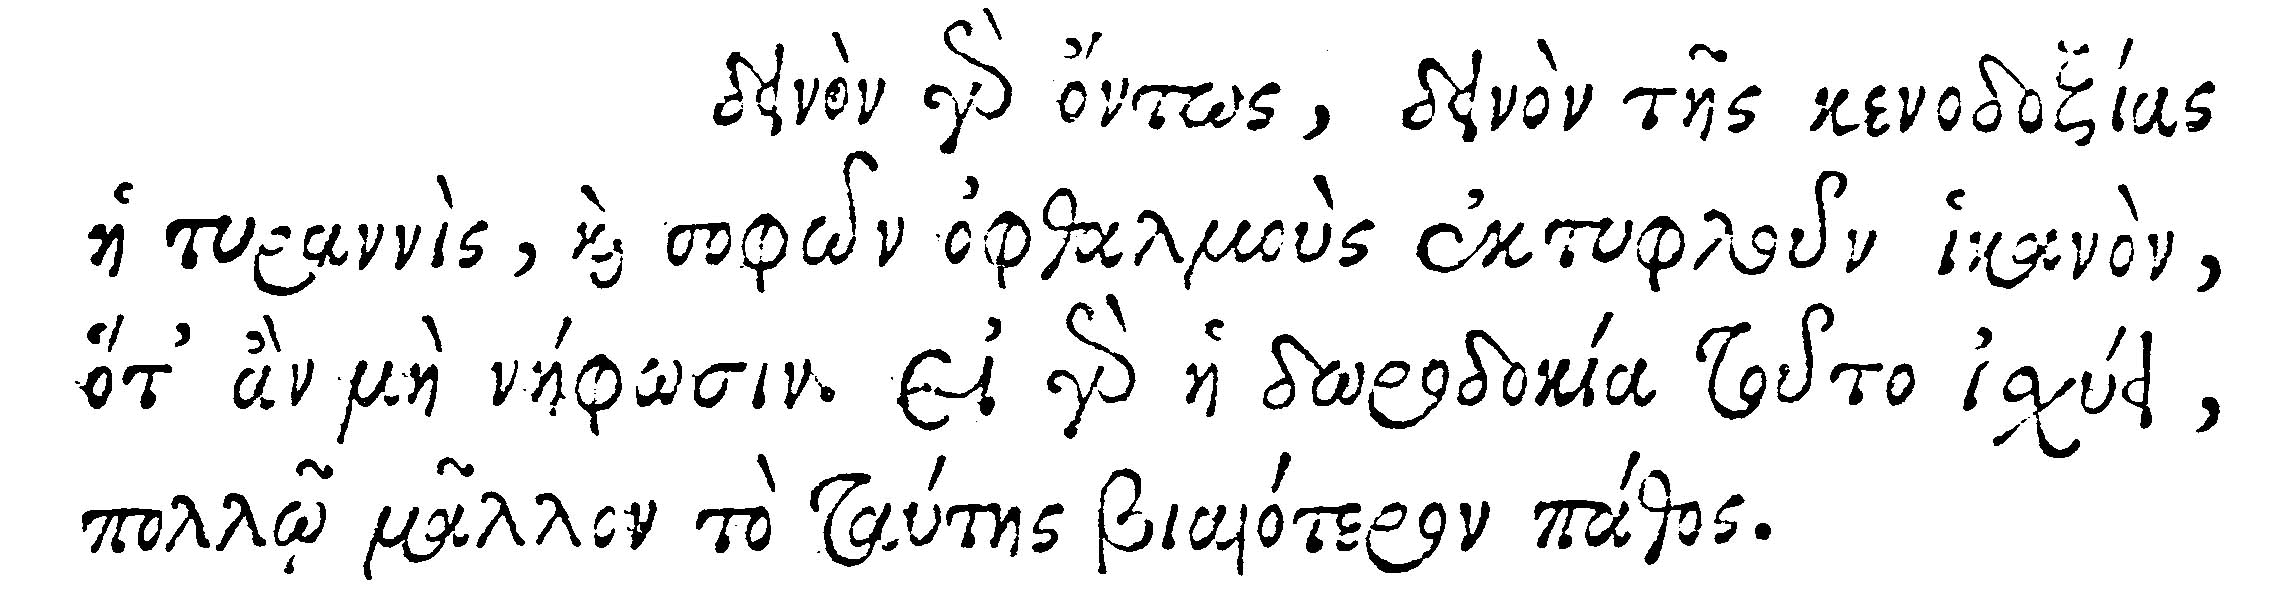 δεινὸν γὰρ ὄντως, δεινὸν τῆς κενοδοξίας
ἡ τυραννὶς, καὶ σοφῶν ὀφθαλμοὺς ἐκτυφλοῦν ἱκανὸν,
ὅτ' ἂν μὴ νήφωσιν. Εἰ γὰρ ἡ δωροδοκία τοῦτο ἰσχύει,
πολλῷ μᾶλλον τὸ ταύτης βιαιότερον πάθος.